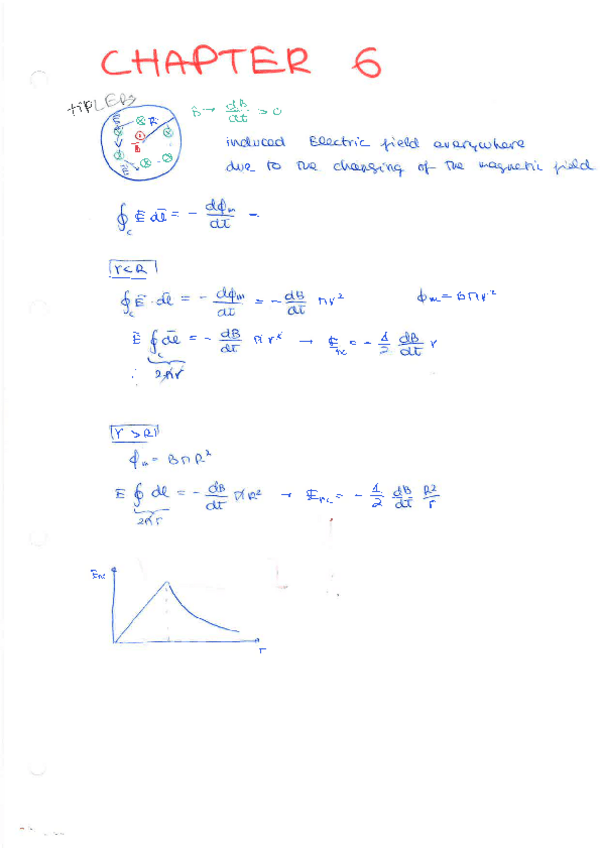 CHAPTER 6
TIPLER
B → dB/dt > 0
R
B
E
induced Electric field everywhere
due to the changing of the magnetic field
∮_c E dl = - dϕ_m/dt
r<R
∮_c E · dl = - dϕ_m/dt = - dB/dt π r² ϕ_m = B π r²
E ∮_c dl = - dB/dt π r² → E_nc = - 1/2 dB/dt r
2πr
r > R
ϕ_m = B π R²
E ∮ dl = - dB/dt π R² → E_nc = - 1/2 dB/dt R²/r
2πr
E_nc
r